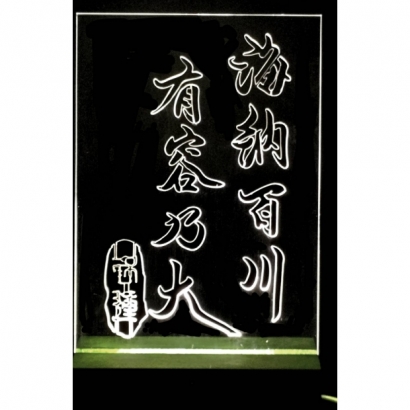 海納百川
有容乃大